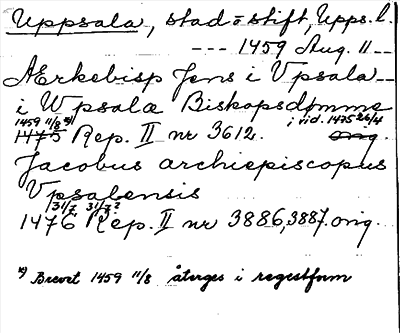 Uppsala, stad o stift, Upps. l.
--- 1459 Aug. 11 --
Ærkebisp Jens i Vpsala --
i Wpsalæ Biskopsdømme
1459 11/8 *) i vid. 1475 26/4
1475 Rep. II nr 3612. orig.
Jacobus archiepiscopus
Vpsalensis
31/7, 31/7?
1476 Rep. II nr 3886, 3887. orig.
*) Brevet 1459 11/8 återges i regestform